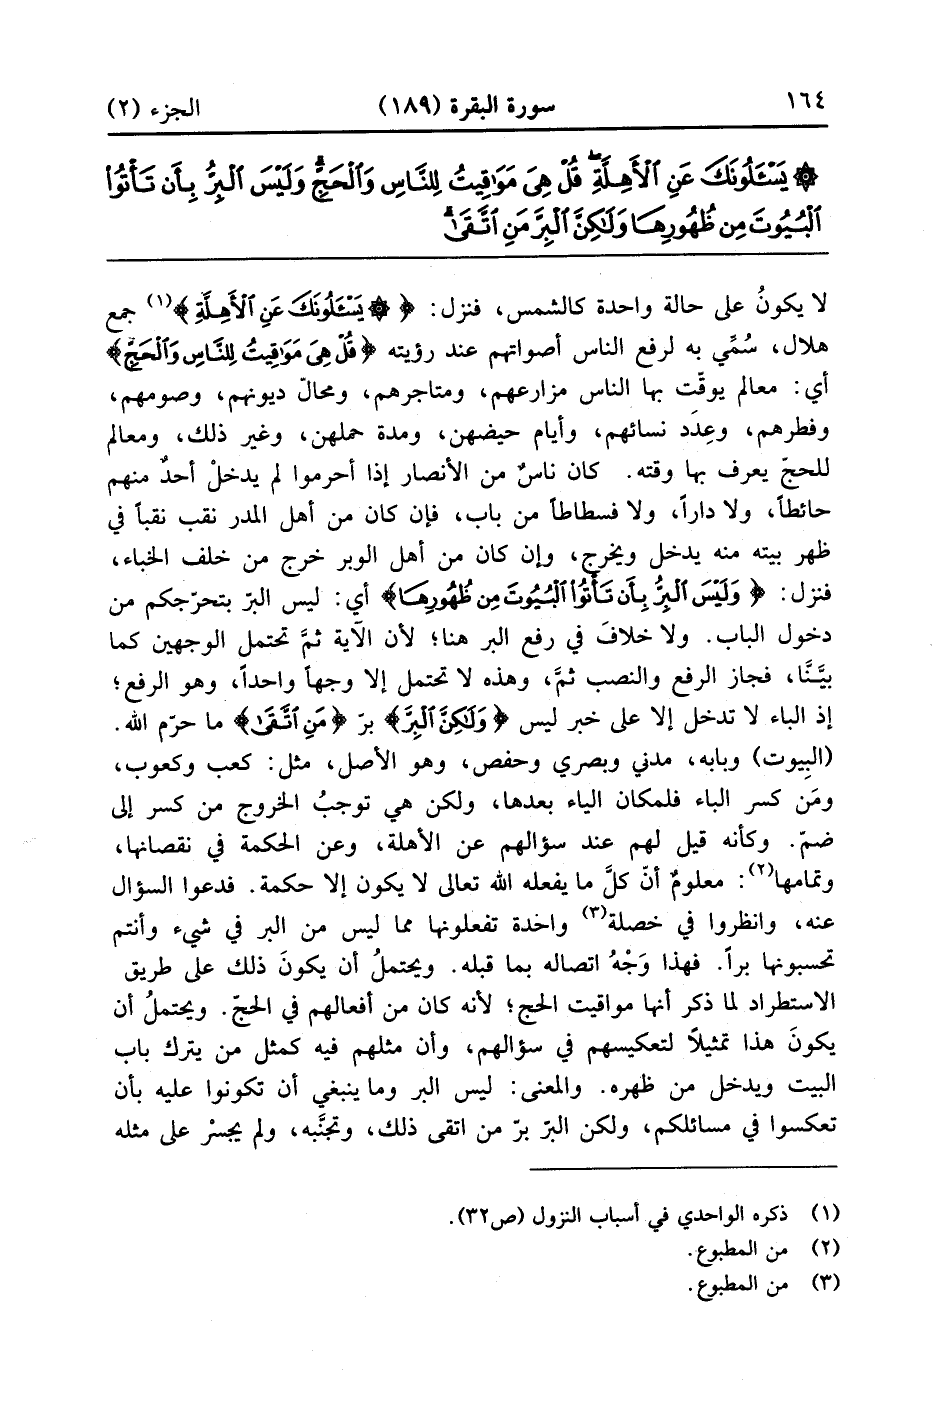 ١٦٤ سورة البقرة (١٨٩) الجزء (٢)
۞ يَسْـَٔلُونَكَ عَنِ ٱلْأَهِلَّةِۖ قُلْ هِىَ مَوَٰقِيتُ لِلنَّاسِ وَٱلْحَجِّۗ وَلَيْسَ ٱلْبِرُّ بِأَن تَأْتُوا۟
ٱلْبُيُوتَ مِن ظُهُورِهَا وَلَٰكِنَّ ٱلْبِرَّ مَنِ ٱتَّقَىٰۗ
لا يكونُ على حالة واحدة كالشمس، فنزل: ﴿۞ يَسْـَٔلُونَكَ عَنِ ٱلْأَهِلَّةِ﴾(١) جمع
هلال، سُمِّي به لرفع الناس أصواتهم عند رؤيته ﴿قُلْ هِىَ مَوَٰقِيتُ لِلنَّاسِ وَٱلْحَجِّ﴾
أي: معالم يوقّت بها الناس مزارعهم، ومتاجرهم، ومحالّ ديونهم، وصومهم،
وفطرهم، وعِدَد نسائهم، وأيام حيضهن، ومدة حملهن، وغير ذلك، ومعالم
للحجّ يعرف بها وقته. كان ناسٌ من الأنصار إذا أحرموا لم يدخلْ أحدٌ منهم
حائطاً، ولا داراً، ولا فسطاطاً من باب، فإن كان من أهل المدر نقب نقباً في
ظهر بيته منه يدخل ويخرج، وإن كان من أهل الوبر خرج من خلف الخباء،
فنزل: ﴿وَلَيْسَ ٱلْبِرُّ بِأَن تَأْتُوا۟ ٱلْبُيُوتَ مِن ظُهُورِهَا﴾ أي: ليس البرّ بتحرّجكم من
دخول الباب. ولا خلافَ في رفع البر هنا؛ لأن الآية ثمَّ تحتمل الوجهين كما
بيَّنَّا، فجاز الرفع والنصب ثمَّ، وهذه لا تحتمل إلا وجهاً واحداً، وهو الرفع؛
إذ الباء لا تدخل إلا على خبر ليس ﴿وَلَٰكِنَّ ٱلْبِرَّ﴾ برّ ﴿مَنِ ٱتَّقَىٰ﴾ ما حرّم الله.
(البِيوت) وبابه، مدني وبصري وحفص، وهو الأصل، مثل: كعب وكعوب،
ومَن كسر الباء فلمكان الياء بعدها، ولكن هي توجبُ الخروج من كسر إلى
ضمّ. وكأنه قيل لهم عند سؤالهم عن الأهلة، وعن الحكمة في نقصانها،
وتمامها(٢): معلومٌ أنّ كلَّ ما يفعله الله تعالى لا يكون إلا حكمة. فدعوا السؤال
عنه، وانظروا في خصلة(٣) واحدة تفعلونها مما ليس من البر في شيء وأنتم
تحسبونها براً. فهذا وَجْهُ اتصاله بما قبله. ويحتملُ أن يكونَ ذلك على طريق
الاستطراد لما ذكر أنها مواقيت الحج؛ لأنه كان من أفعالهم في الحجّ. ويحتملُ أن
يكونَ هذا تمثيلاً لتعكيسهم في سؤالهم، وأن مثلهم فيه كمثل من يترك باب
البيت ويدخل من ظهره. والمعنى: ليس البر وما ينبغي أن تكونوا عليه بأن
تعكسوا في مسائلكم، ولكن البرّ برّ من اتقى ذلك، وتجنَّبه، ولم يجسرْ على مثله
(١) ذكره الواحدي في أسباب النزول (ص٣٢).
(٢) من المطبوع.
(٣) من المطبوع.